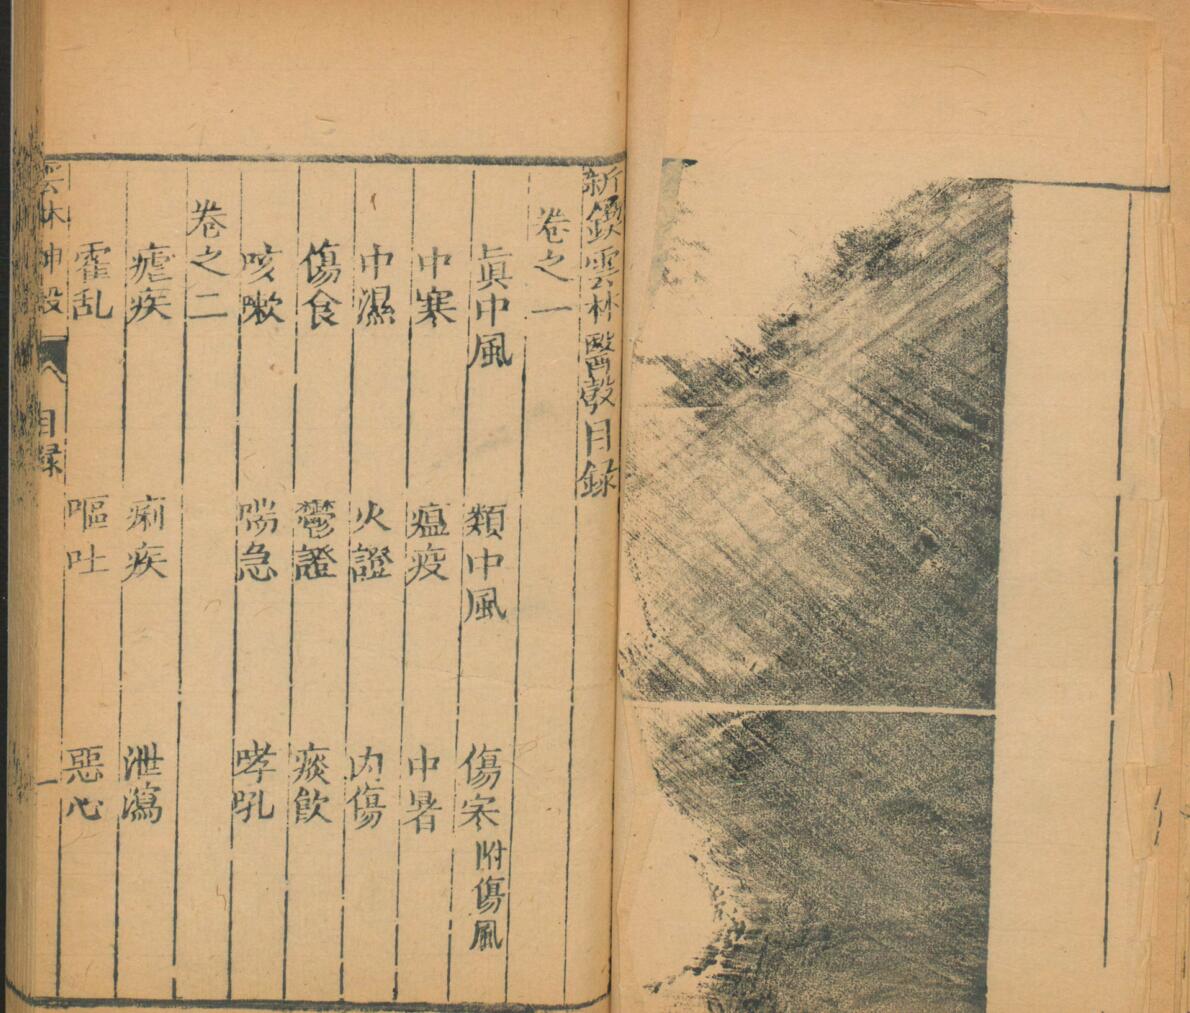 新鐫雲林醫彀目錄
卷之一
眞中風　類中風　傷寒附傷風
中寒　瘟疫　中暑
中濕　火證　內傷
傷食　鬱證　痰飲
咳嗽　喘急　哮吼
卷之二
瘧疾　痢疾　泄瀉
霍乱　嘔吐　惡心
雲林神彀　目錄　一